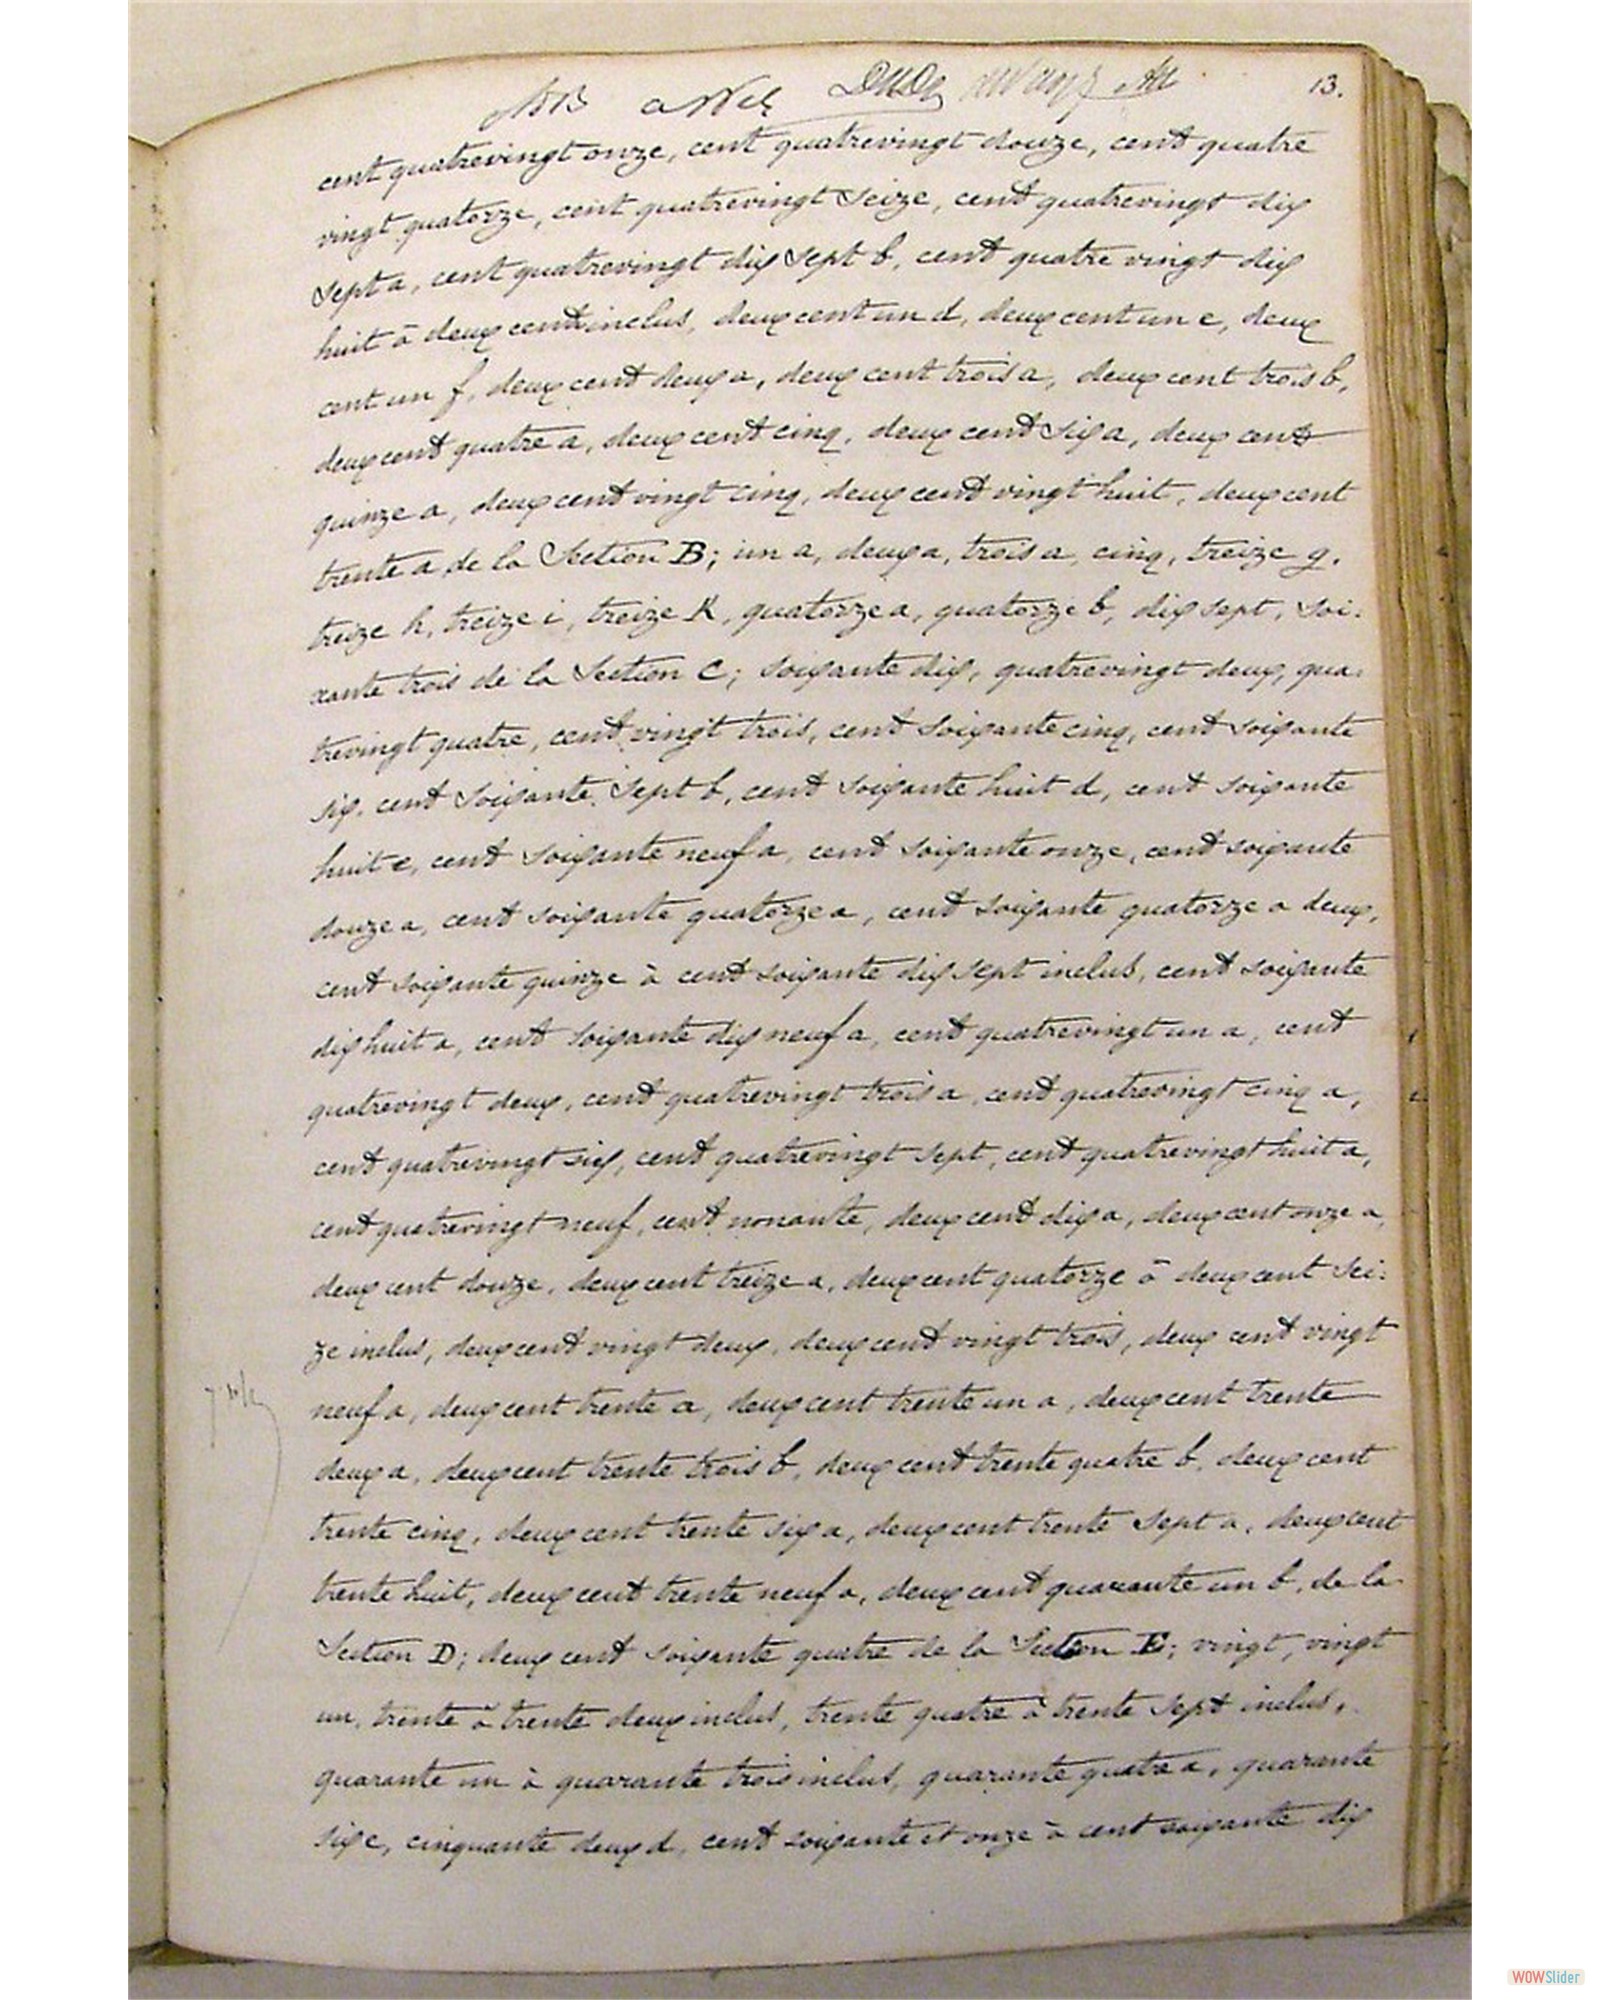 13.
cent quatrevingt onze, cent quatrevingt douze, cent quatre
vingt quatorze, cent quatrevingt seize, cent quatrevingt dix
sept a, cent quatrevingt dix sept b, cent quatre vingt dix
huit à deux cent inclus, deux cent un d, deux cent un e, deux
cent un f, deux cent deux a, deux cent trois a, deux cent trois b,
deux cent quatre a, deux cent cinq, deux cent six a, deux cent
quinze a, deux cent vingt cinq, deux cent vingt huit, deux cent
trente a de la Section B; un a, deux a, trois a, cinq, treize g,
treize h, treize i, treize K, quatorze a, quatorze b, dix sept, soi:
xante trois de la Section C; soixante dix, quatrevingt deux, qua:
trevingt quatre, cent vingt trois, cent soixante cinq, cent soixante
six, cent soixante sept b, cent soixante huit d, cent soixante
huit e, cent soixante neuf a, cent soixante onze, cent soixante
douze a, cent soixante quatorze a, cent soixante quatorze a deux,
cent soixante quinze à cent soixante dix sept inclus, cent soixante
dix huit a, cent soixante dix neuf a, cent quatrevingt un a, cent
quatrevingt deux, cent quatrevingt trois a, cent quatrevingt cinq a,
cent quatrevingt six, cent quatrevingt sept, cent quatrevingt huit a,
cent quatrevingt neuf, cent nonante, deux cent dix a, deux cent onze a,
deux cent douze, deux cent treize a, deux cent quatorze à deux cent sei:
ze inclus, deux cent vingt deux, deux cent vingt trois, deux cent vingt
neuf a, deux cent trente a, deux cent trente un a, deux cent trente
deux a, deux cent trente trois b, deux cent trente quatre b, deux cent
trente cinq, deux cent trente six a, deux cent trente sept a, deux cent
trente huit, deux cent trente neuf a, deux cent quarante un b, de la
Section D; deux cent soixante quatre de la Section E; vingt, vingt
un, trente à trente deux inclus, trente quatre à trente sept inclus,
quarante un à quarante trois inclus, quarante quatre a, quarante
six c, cinquante deux d, cent soixante et onze à cent soixante dix
WOWSlider